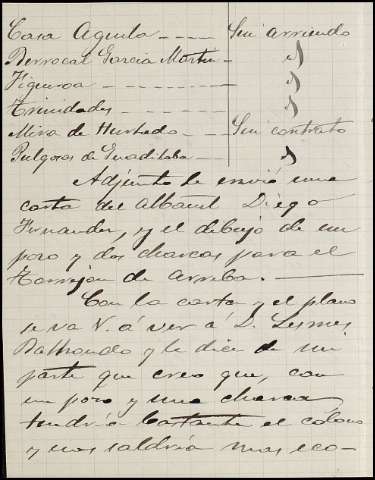 Casa Aguila ---- Sin arriendo
Berrocal Garcia Martin -- id
Figueroa -------- id
Trinidades -------- id
Mira de Hurtado ---- Sin contrato
Pulgosas de Guaditoba -- id
Adjunto le envio una
carta del Albañil Diego
Fernandez, y el dibujo de un
pozo y dos charcas para el
Torrejon de Arriba. ———
Con la carta y el plano
se va V. á ver á D. Lesmes
y le dice de mi
parte que creo que, con
un pozo y una charca,
tendría bastante el colono
y nos saldría mas eco-